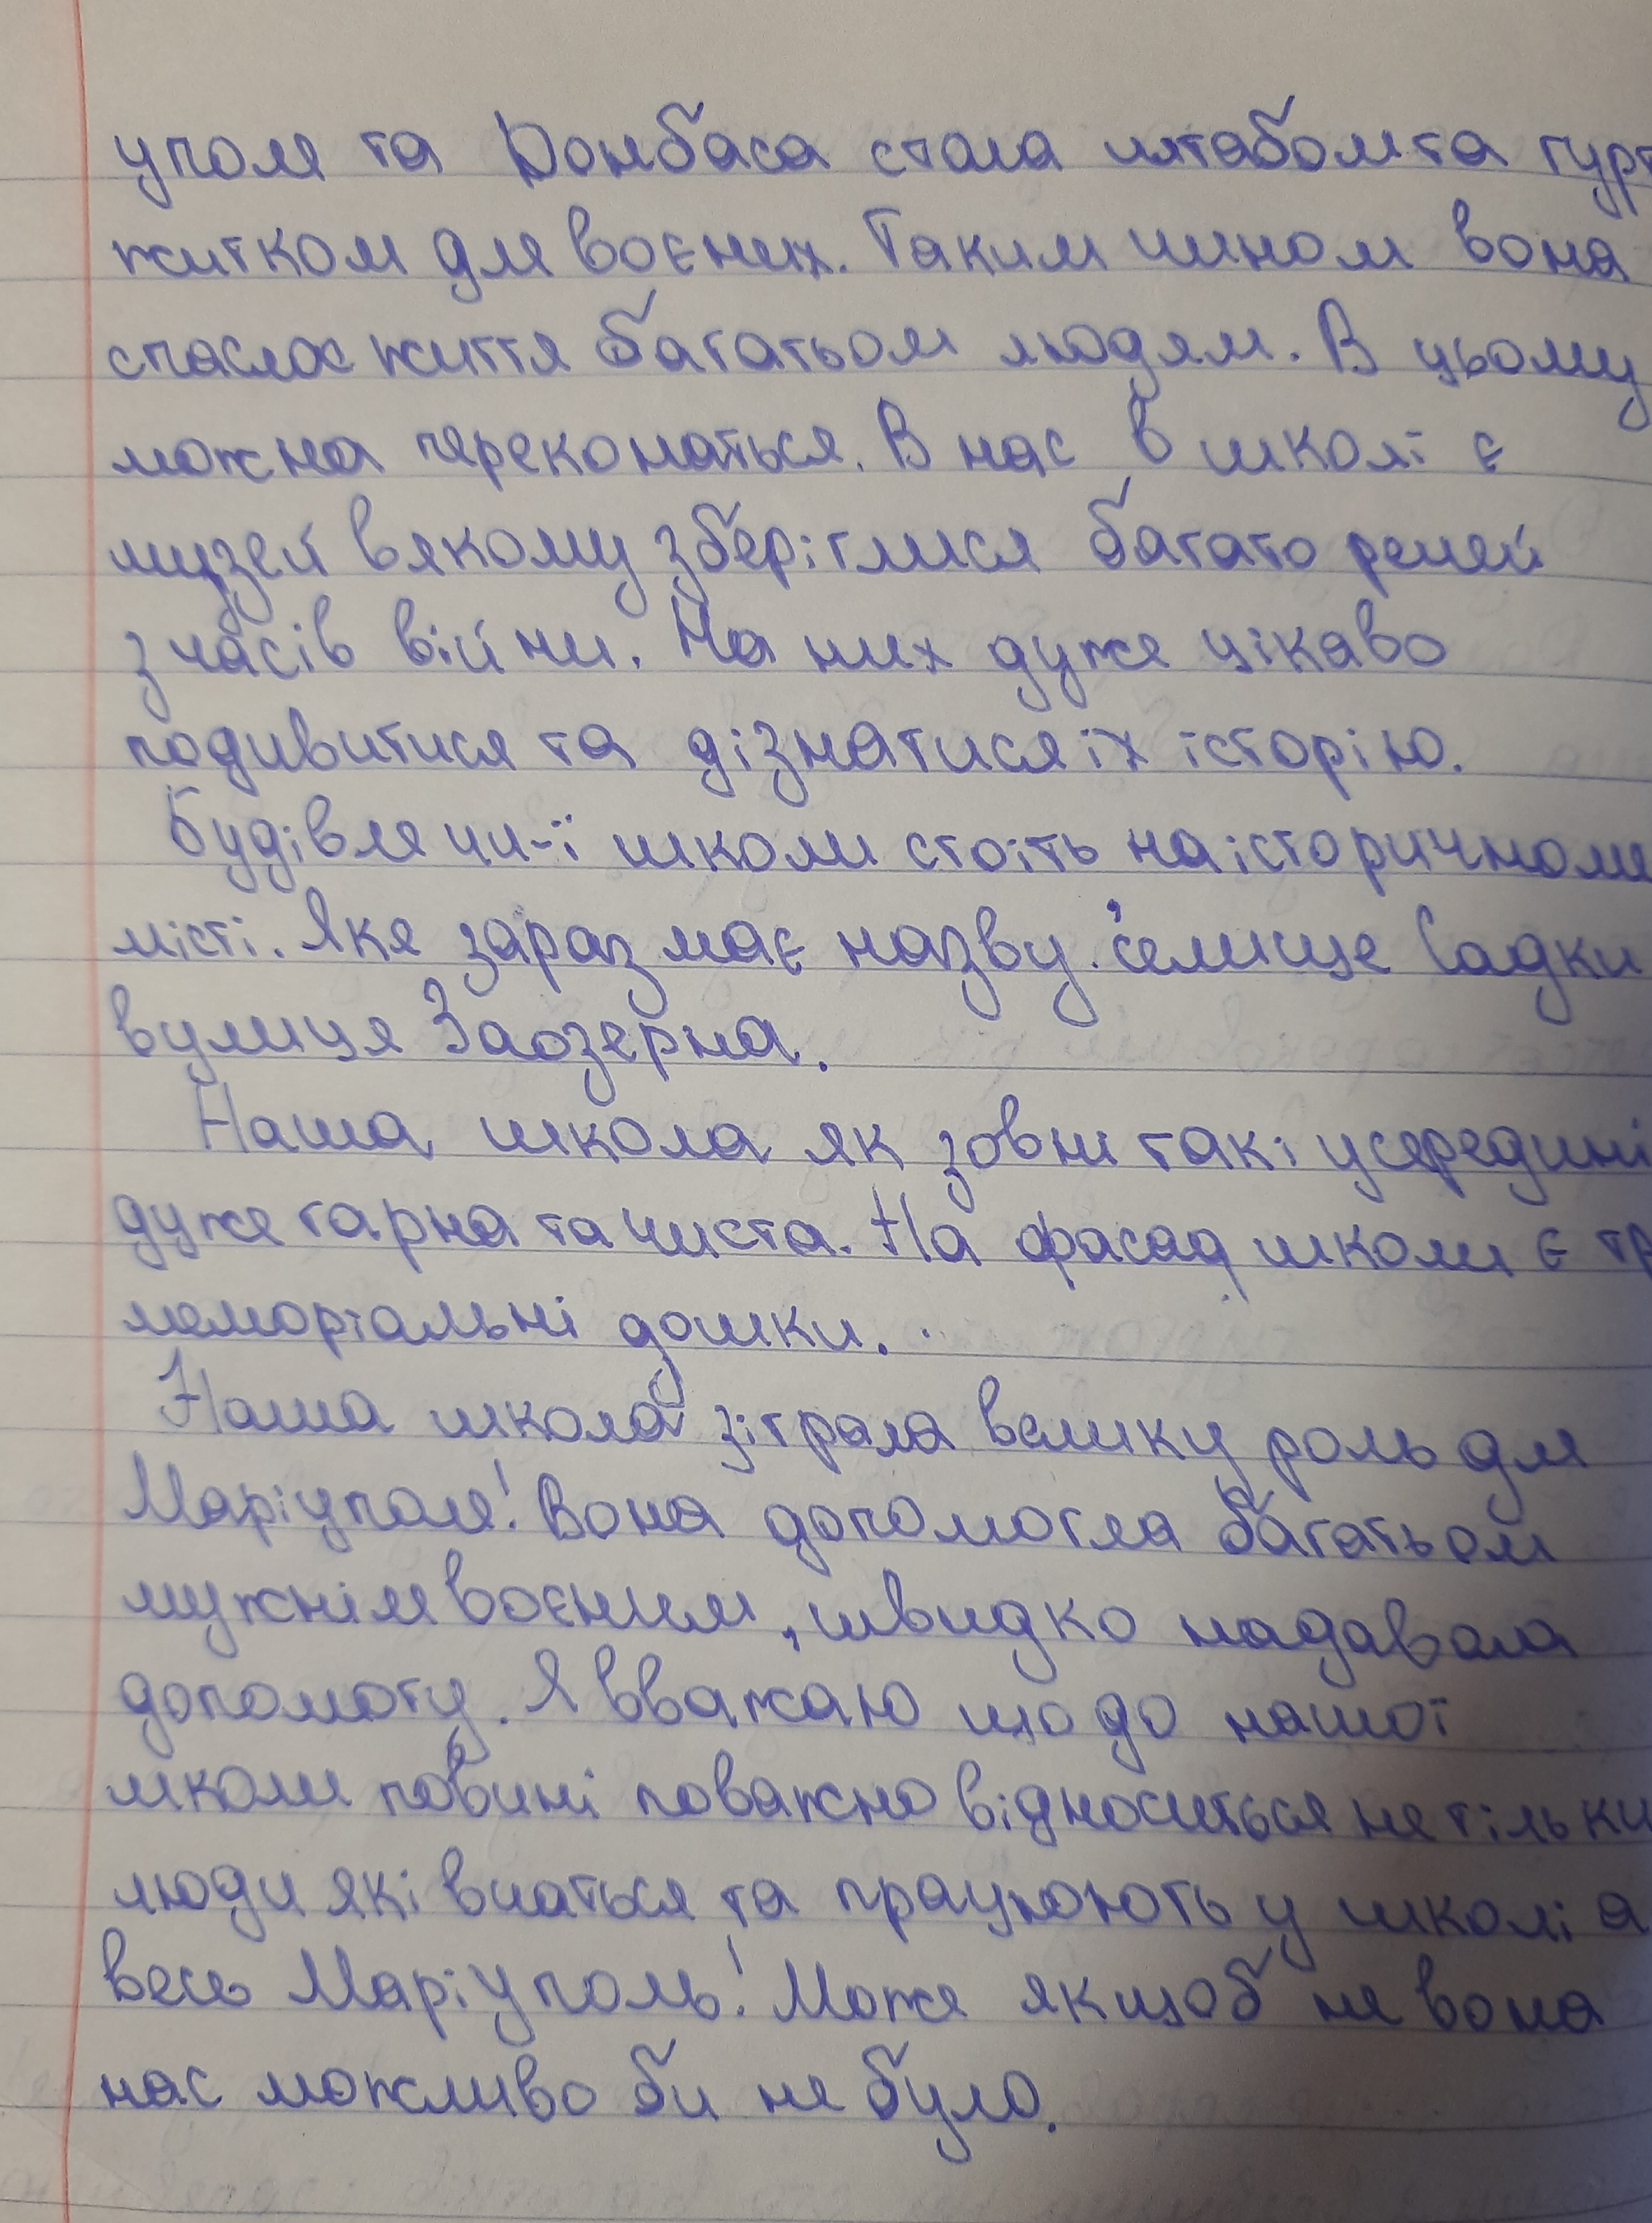 уполя та Донбаса стала штабом та гурт
житком для воєних. Таким чином вона
спасла життя багатьом людям. В цьому
можна переконаться. В нас в школі є
музей в якому зберіглися багато речей
з часів війни. На них дуже цікаво
подивитися та дізнатися їх історію.
Будівля чи-ї школи стоїть на історичноми
місті. Яке зараз має назву. селище Садки
вулиця Заозерна.
Наша школа як зовні так і усередині
дуже гарна та чиста. На фасад школи є тр
меморіальні дошки.
Наша школа зіграла велику роль для
Маріуполя! Вона допомогла багатьом
мужнім воєним, швидко надавала
допомогу. Я вважаю що до нашої
школи повині поважно відноситься не тільки
люди які вчаться та працюють у школі а
весь Маріуполь! Може якщоб не вона
нас можливо би не було.